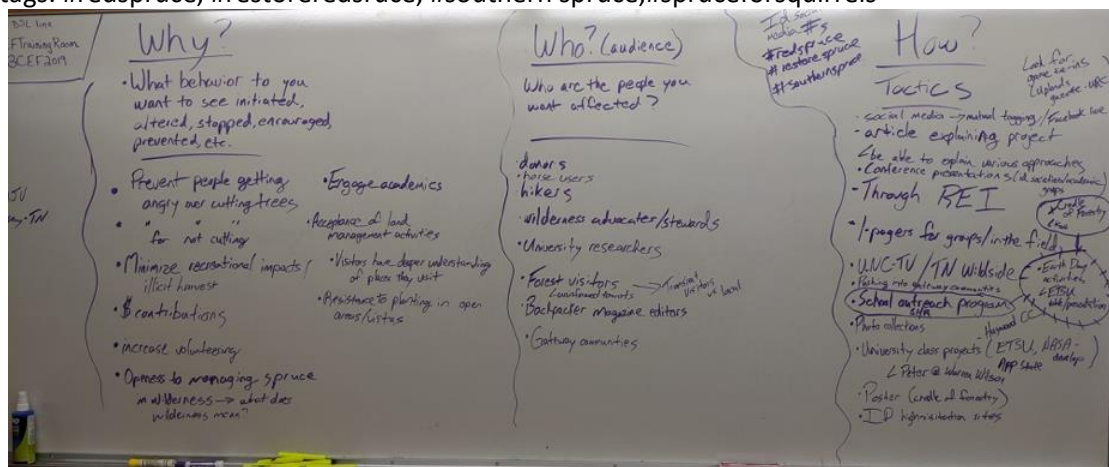 tags: #redspruce, #restoreredsruce, #southern spruce,#spruceforsquirrels
DSL line
EFTrainingRoom
BCEF2019
Why?
• What behavior to you
want to see initiated,
altered, stopped, encouraged,
prevented, etc.
• Prevent people getting
angry over cutting trees
" " " "
for not cutting
• Minimize recreational impacts/
illicit harvest
• $ contributions
• increase volunteering
• Opness to managing spruce
in wilderness → what does
wilderness mean?
• Engage academics
• Acceptance of land
management activities
• Visitors have deeper understanding
of places they visit
• Resistance to planting in open
areas/vistas
Who? (audience)
Who are the people you
want affected?
• donors
• horse users
hikers
• wilderness advocates/stewards
• University researchers
• Forest visitors → Transient
visitors
vs local
• Backpacker magazine editors
• Gateway communities
media #s
#redspruce
#restorespruce
#southernspruce
How?
Look for
Tactics
- social media → mutual tagging/Facebook live
- article explaining project
be able to explain various approaches
• Conference presentations
groups
- Through REI
Cradle
of Forestry
- 1-pagers for groups/in the field
• UNC-TV/TN Wildside
• Earth Day
activities
ETSU
gateway communities
• School outreach programs
Haywood CC
• Photo collections
• University class projects (ETSU, NASA-
develop)
App State
Peter @ Warren Wilson
• Poster (cradle of forestry)
• ID high visitation sites